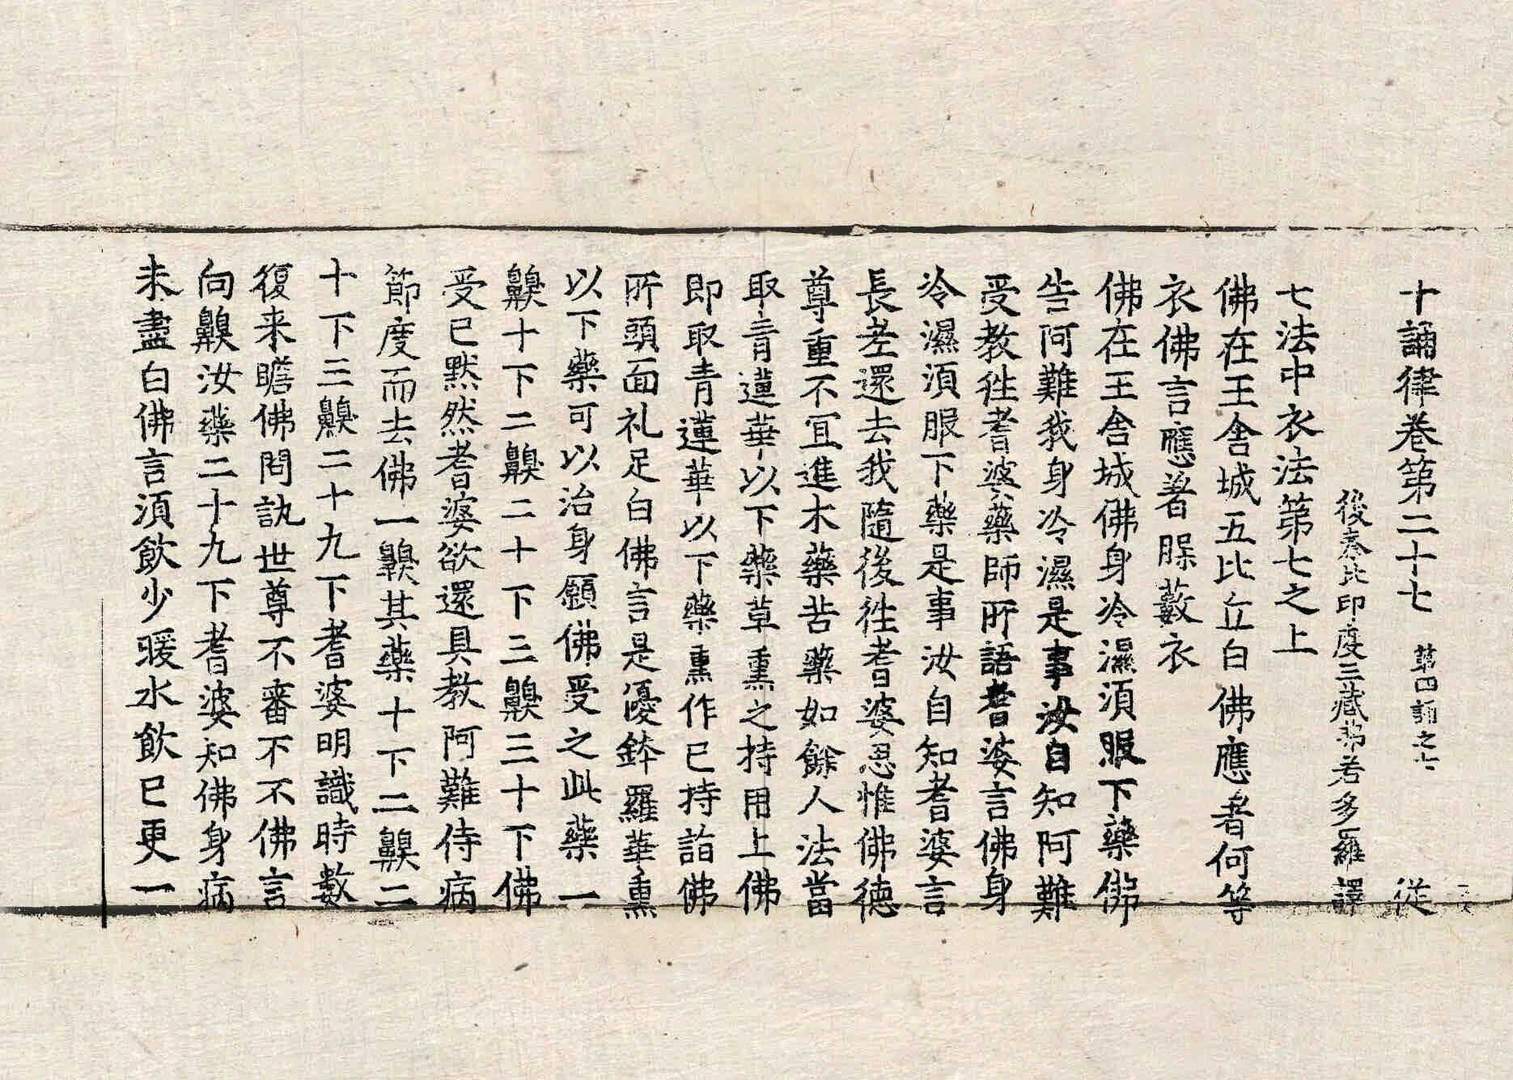 十誦律卷第二十七 第四誦之七 從
後秦北印度三藏弗若多羅譯
七法中衣法第七之上
佛在王舍城五比丘白佛應著何等
衣佛言應著𦡀藪衣
佛在王舍城佛身冷濕須服下藥佛
告阿難我身冷濕是事汝自知阿難
受教徃耆婆藥師所語耆婆言佛身
冷濕須服下藥是事汝自知耆婆言
長差還去我隨後徃耆婆思惟佛德
尊重不冝進木藥苦藥如餘人法當
取青蓮華以下藥草熏之持用上佛
即取青蓮華以下藥熏作已持詣佛
所頭面礼足白佛言是優鉢羅華熏
以下藥可以治身願佛受之此藥一
齅十下二齅二十下三齅三十下佛
受已默然耆婆欲還具教阿難侍病
節度而去佛一齅其藥十下二齅二
十下三齅二十九下耆婆明識時數
復来瞻佛問訊世尊不審下不佛言
向齅汝藥二十九下耆婆知佛身病
未盡白佛言須飲少暖水飲已更一